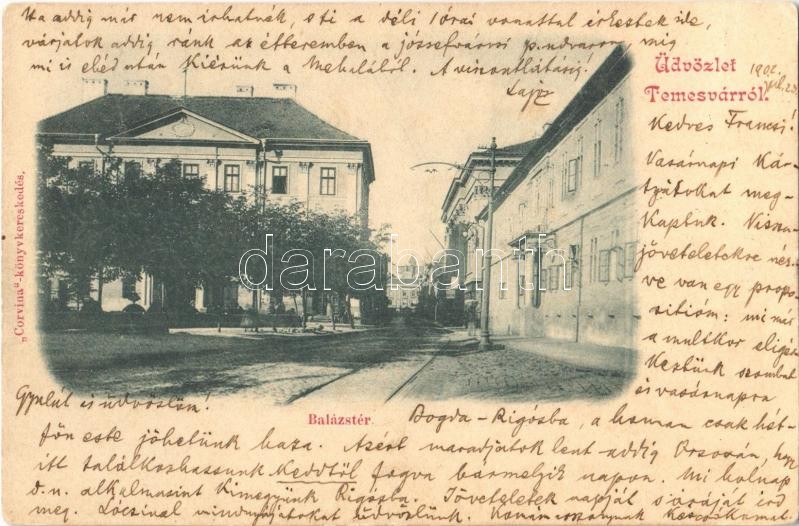 Ha addig már nem irhatnák, s ti a déli 1órai vonattal érkeztek ide,
várjatok addig ránk az étteremben a józsefvárosi p.udvaron, míg
mi is ebéd után Kiérünk a Mehaláról. A viszontlátásig.
Lajz
Üdvözlet
Temesvárról.
1902.
Kedves Francsi!
Vasárnapi Kár-
tyátokat meg-
Kaptuk. Vissza-
jöveteletekre néz-
ve van egy propo-
sitióm: mi már
a multkor eligér-
Keztünk szombat
és vasárnapra
"Corvina"-könyvkereskedés,
darabanth
Gyulát is üdvözlöm!
Balázstér.
Bogda-Rigósba, a honnan csak hét-
főn este jöhetünk haza. Azért maradjatok lent addig Orsován, hogy
itt találkozhassunk Keddtől fogva bármelyik napon. Mi holnap
d.u. alkalmasint Kimegyünk Rigósba. Jöveteletek napját s óráját ird
meg. Lócival mindnyájatokat üdvözlünk.